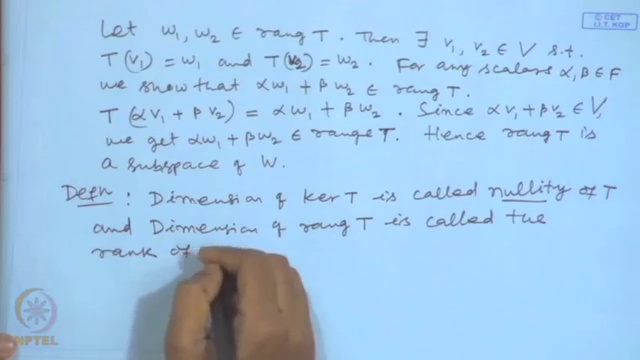 © CET
I.I.T. KGP
Let w₁, w₂ ∈ rang T. Then ∃ v₁, v₂ ∈ V s.t.
T(v₁) = w₁ and T(v₂) = w₂. For any scalars α, β ∈ F
we show that αw₁ + βw₂ ∈ rang T.
T(αv₁ + βv₂) = αw₁ + βw₂. Since αv₁ + βv₂ ∈ V,
we get αw₁ + βw₂ ∈ range T. Hence rang T is
a subspace of W.
Defn : Dimension of ker T is called nullity of T
and Dimension of rang T is called the
rank of
NPTEL